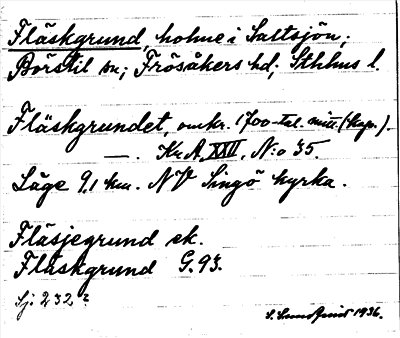 Fläskgrund, holme i Saltsjön;
Börstil sn; Frösåkers hd; Sthlms l.
Fläskgrundet, omkr. 1700-tal. mitt. (kop.).
— . Kr. A. XXII, N:o 35.
Läge 9,1 km. NV Singö kyrka.
Fläsjegrund ek.
Fläskgrund G. 93.
Sj. 232?
1936.